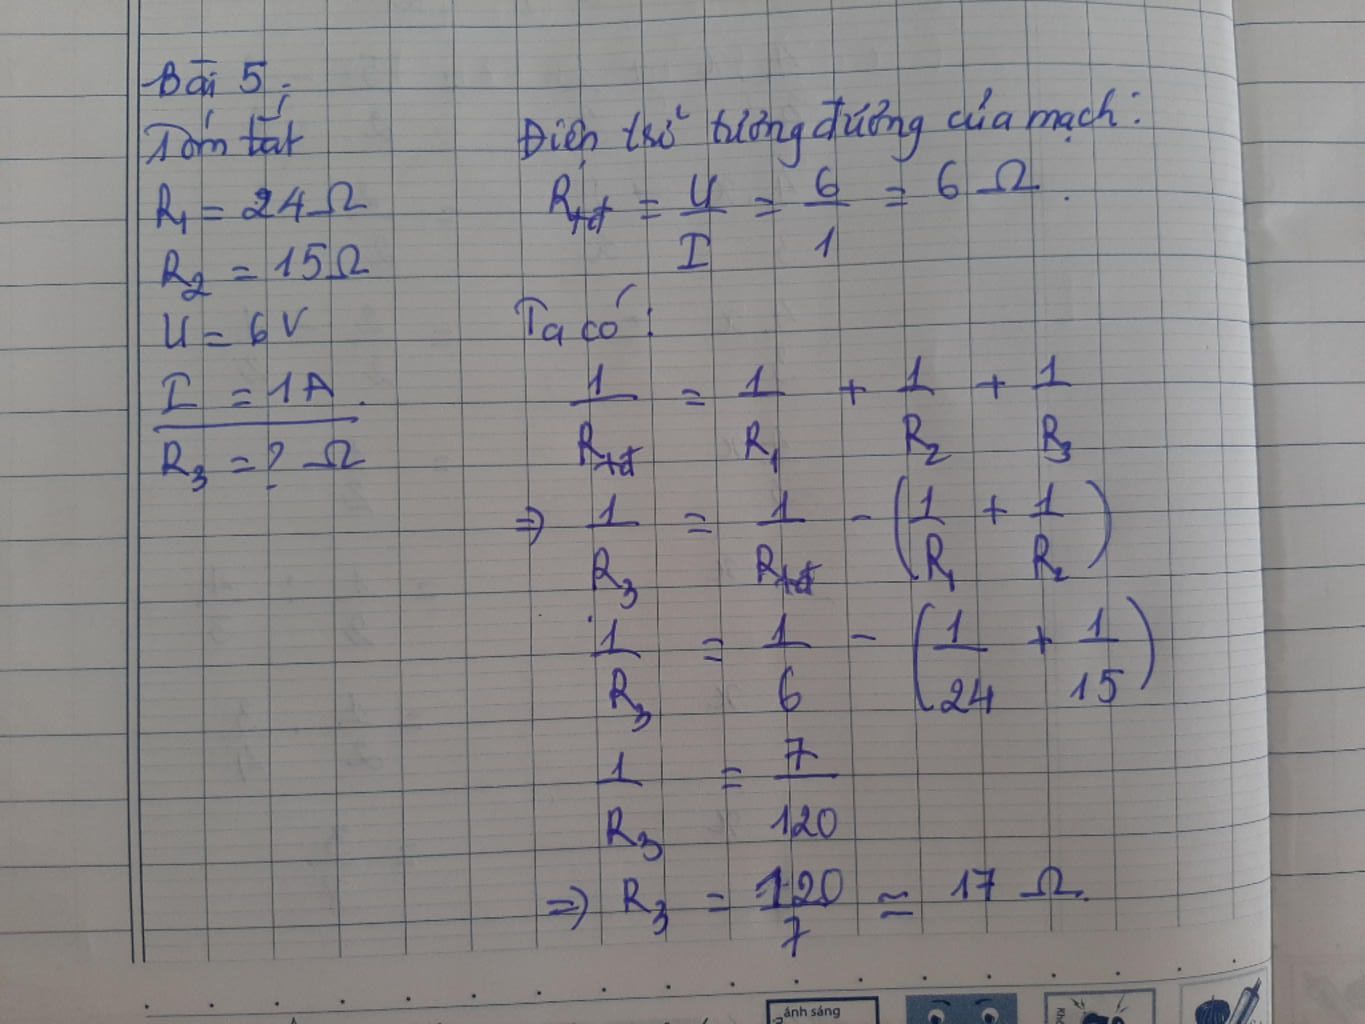 Bài 5:
Tóm tắt
R₁ = 24 Ω
R₂ = 15 Ω
U = 6 V
I = 1 A.
R₃ = ? Ω
Điện trở tương đương của mạch:
Rtđ = U/I = 6/1 = 6 Ω.
Ta có:
1/Rtđ = 1/R₁ + 1/R₂ + 1/R₃
⇒ 1/R₃ = 1/Rtđ - (1/R₁ + 1/R₂)
1/R₃ = 1/6 - (1/24 + 1/15)
1/R₃ = 7/120
⇒ R₃ = 120/7 ≃ 17 Ω.
ánh sáng